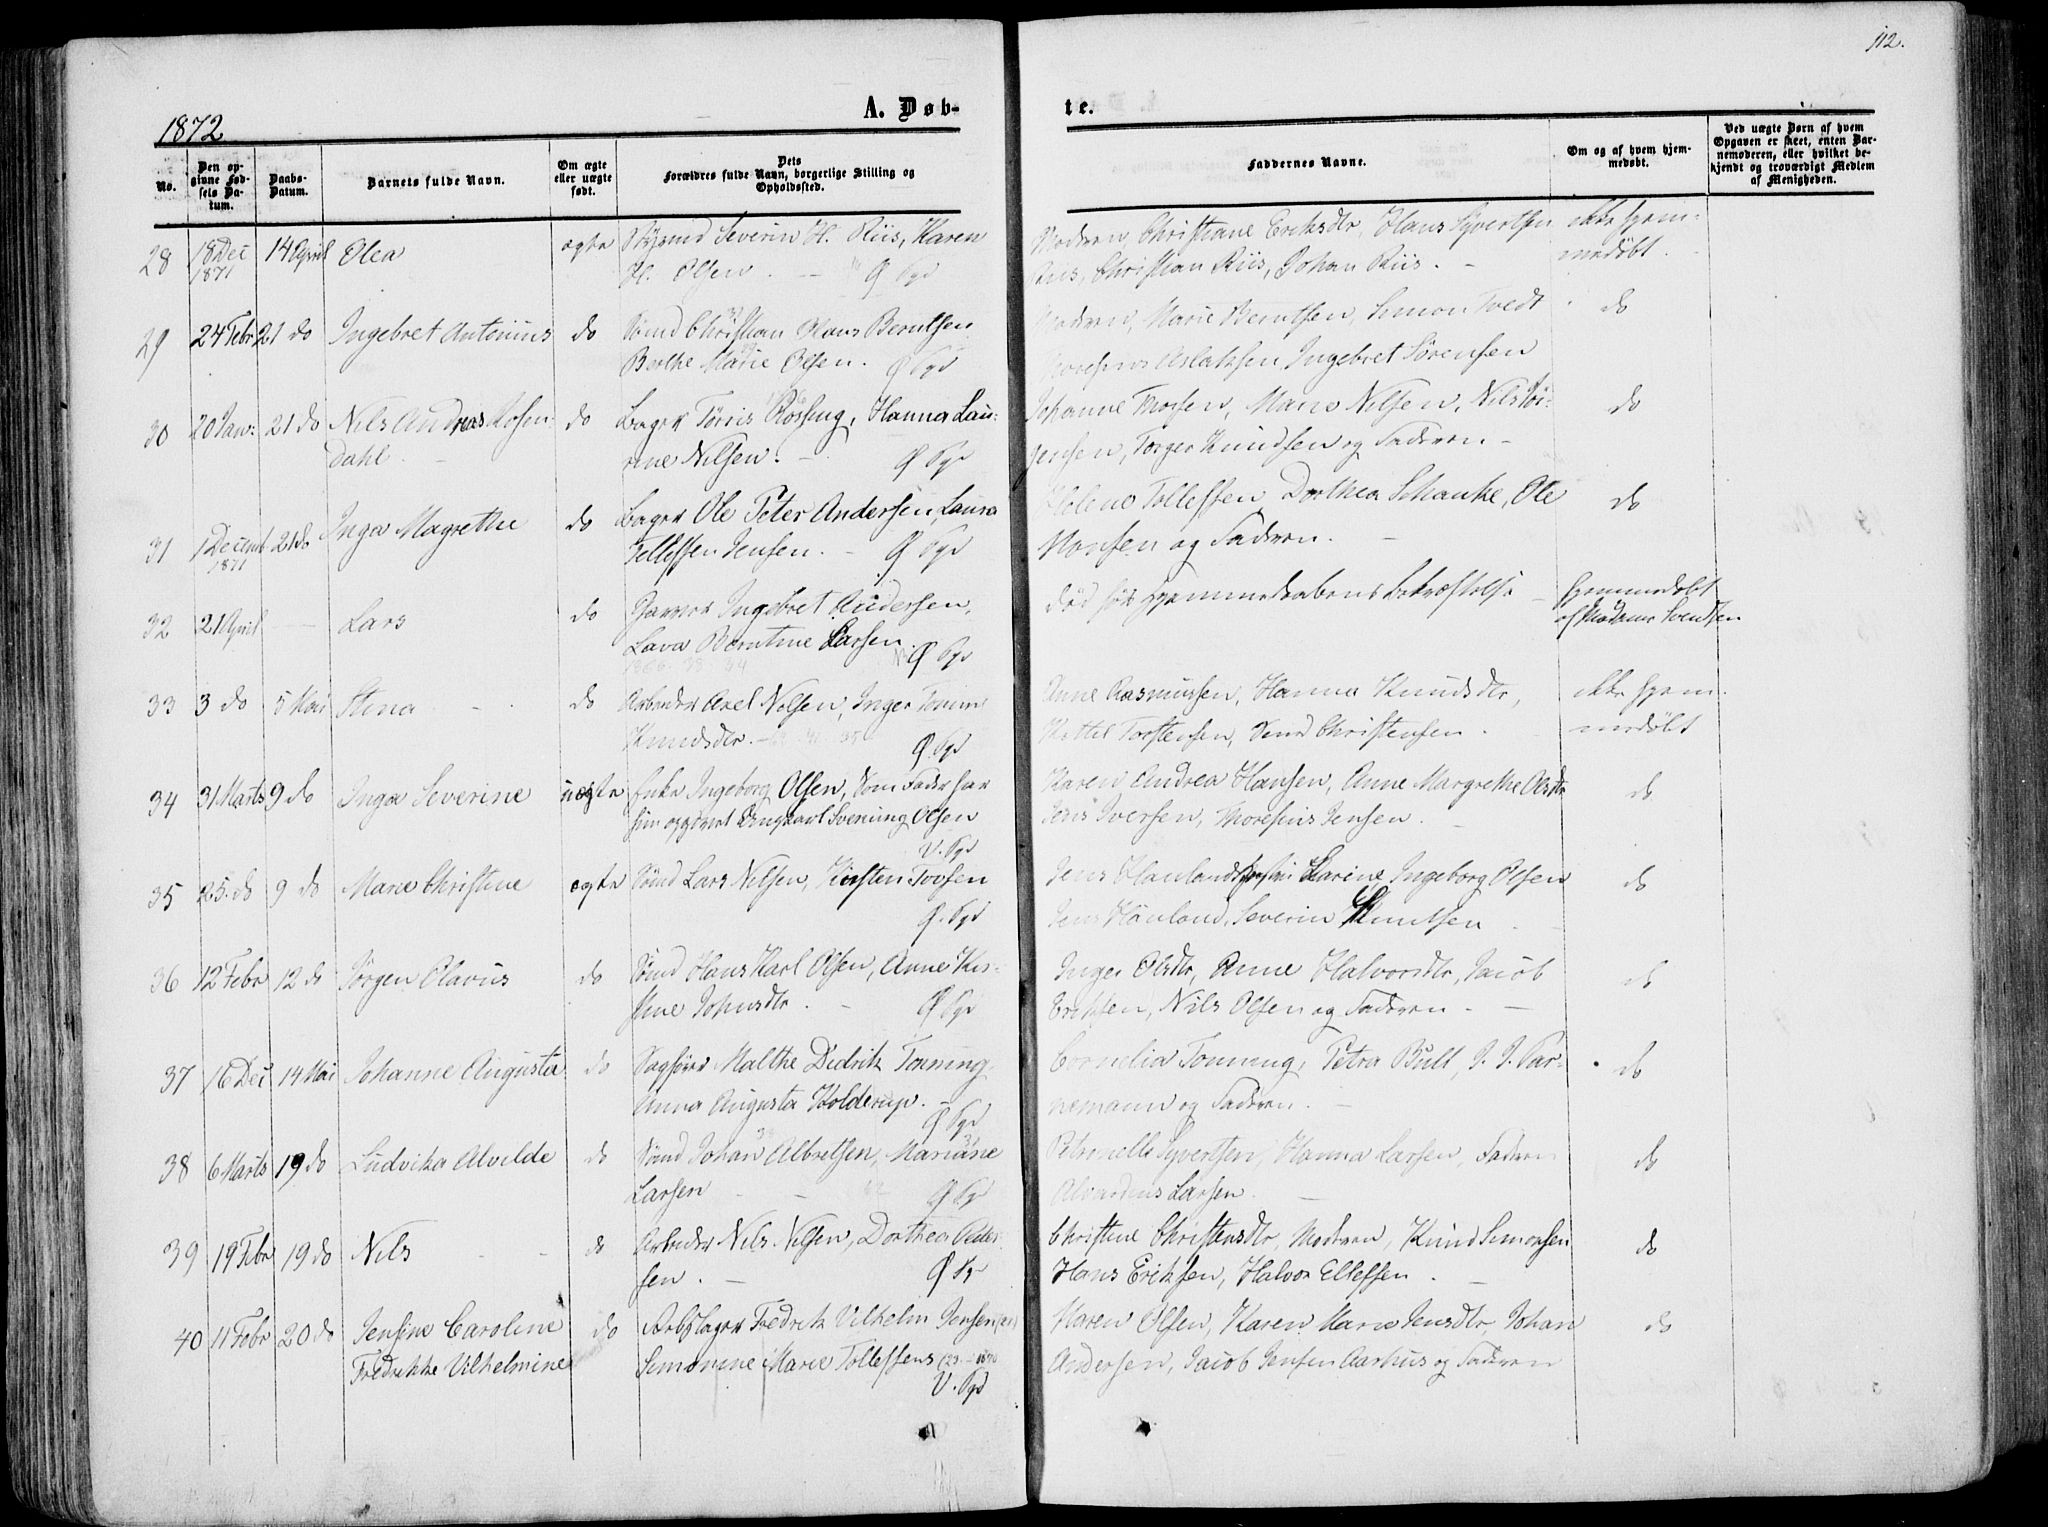 112.
1872
A. Døb-
te.
No.
Den op-
givne Fød-
sels Da-
tum.
Daabs-
Datum.
Barnets fulde Navn.
Om ægte
eller uægte
født.
Dets
Forældres fulde Navn, borgerlige Stilling og
Opholdssted.
Faddernes Navne.
Om og af hvem hjem-
medøbt.
Ved uægte Børn af hvem
Opgaven er skeet, enten Bar-
nemoderen, eller hvilket be-
kjendt og troværdigt Medlem
af Menigheden.
28 18 Dec 14 April Olea ægte Severin H. Riis, Karen Moderen, Christiane Eriksdtr, Hans Syvertsen ikke hjem-
1871 H. Olsen. Ø Riis, Christian Riis, Johan Riis. medøbt.
29 24 Febr 21 do Ingebret Antonius do Sømd Christian Olaus Berntsen Moderen, Marie Berntsen, Simon Tvedt do
Berthe Marie Olsen. Ø Aslaksen, Ingebret Sørensen
30 20 Jan: 21 do Nils Andreas Rosen- do Bager Tørris Roseng, Hanna Lau- Johanne Thorsen, Marie Nilsen, Nils Jør- do
dahl rine Nilsen. Ø gensen, Torger Knudsen og Faderen
31 1 Decemb 21 do Inga Magrethe do Bager Ole Peter Andersen, Laura Helene Tellefsen, Dorthea Schanke, Ole do
1871 Tellefsen Jensen. Ø Monsen og Faderen.
32 21 April Lars do Garver Ingebret Andersen, død før Hjemmedaabens Bekræftelse hjemmedøbt
Lava Berntine Larsen Ø af Madame Svendsen
33 3 do 5 Mai Stina do Arbeider Axel Nilsen, Inger Anne Rasmussen, Hanna Knudsdtr, ikke hjem-
Knudsdtr. Ø Kittil Torstensen, Christensen. medøbt
34 31 Marts 9 do Inga Severine uægte Enke Ingeborg Olsen, Som Fader har Karen Andrea Hansen, Anne Margrethe Olsdtr do
hun opgivet Ungkarl Svenung Olsen Iversen, Thoresius Jensen.
V.
35 25. do 9 do Marie Christine ægte Sømd Lars Nilsen, Kirsten Tovsen Jens Larine Ingeborg Olsen do
Ø. Jens Severin Knutsen
36 12 Febr 12 do Jørgen Olavus do Sømd Hans Karl Olsen, Anne Kir- Inger Olsdtr, Anne Halvorsdtr, Jacob do
stine Johnsdtr. Ø Eriksen, Nils Olsen og Faderen
37 16 Dec 14 Mai Johanne Augusta do Sagfører Malthe Didrik Tonning Cornelia Tonning, Petra Bull, J. J. Par- do
Anna Augusta Holderup. Ø nemann og Faderen.
38 6 Marts 19 do Ludvika Alvilde do Sømd Johan Albretsen, Mariane Petronelle Syvertsen, Hanna Larsen, Faderen do
Larsen Ø Larsen.
39 19 Febr 19 do Nils do Arbeider Nils Nilsen, Dorthea Peder- Christine Christensdtr, Moderen, Knud Simonsen do
sen. Ø Hans Eriksen, Halvor Ellefsen.
40 11 Febr 20 do Jensine Caroline do Arb Fredrik Vilhelm Jensen Maren Olsen, Karen Marie Jensdtr, Johan do
Fredrikke Vilhelmine Simonine Marie Tollefsens Andersen, Jacob Jensen Aarhus og Faderen
V.